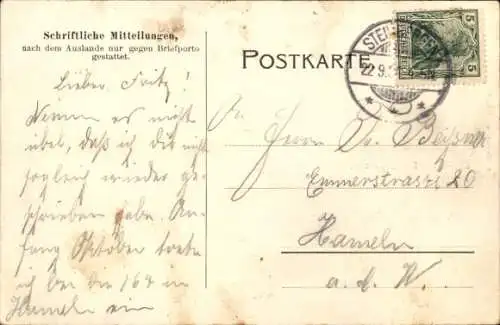 Schriftliche Mitteilungen,
nach dem Auslande nur gegen Briefporto
gestattet.
POSTKARTE
22.9.
5
5
Lieber Fritz!
Nimm es nicht
übel, daß ich Dir nicht
sogleich wieder ge-
schrieben habe. An-
fang Oktober trete
ich bei den 164 in
Hameln ein
An
Herrn
Emmerstrasse 20
Hameln
a. d. W.